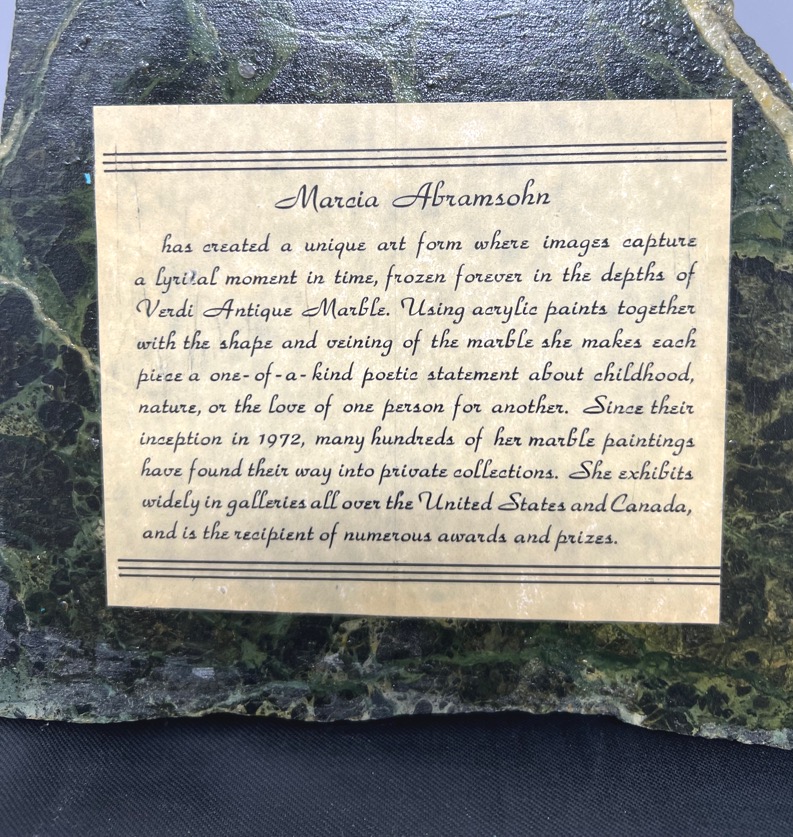 Marcia Abramsohn
has created a unique art form where images capture
a lyrical moment in time, frozen forever in the depths of
Verdi Antique Marble. Using acrylic paints together
with the shape and veining of the marble she makes each
piece a one-of-a-kind poetic statement about childhood,
nature, or the love of one person for another. Since their
inception in 1972, many hundreds of her marble paintings
have found their way into private collections. She exhibits
widely in galleries all over the United States and Canada,
and is the recipient of numerous awards and prizes.